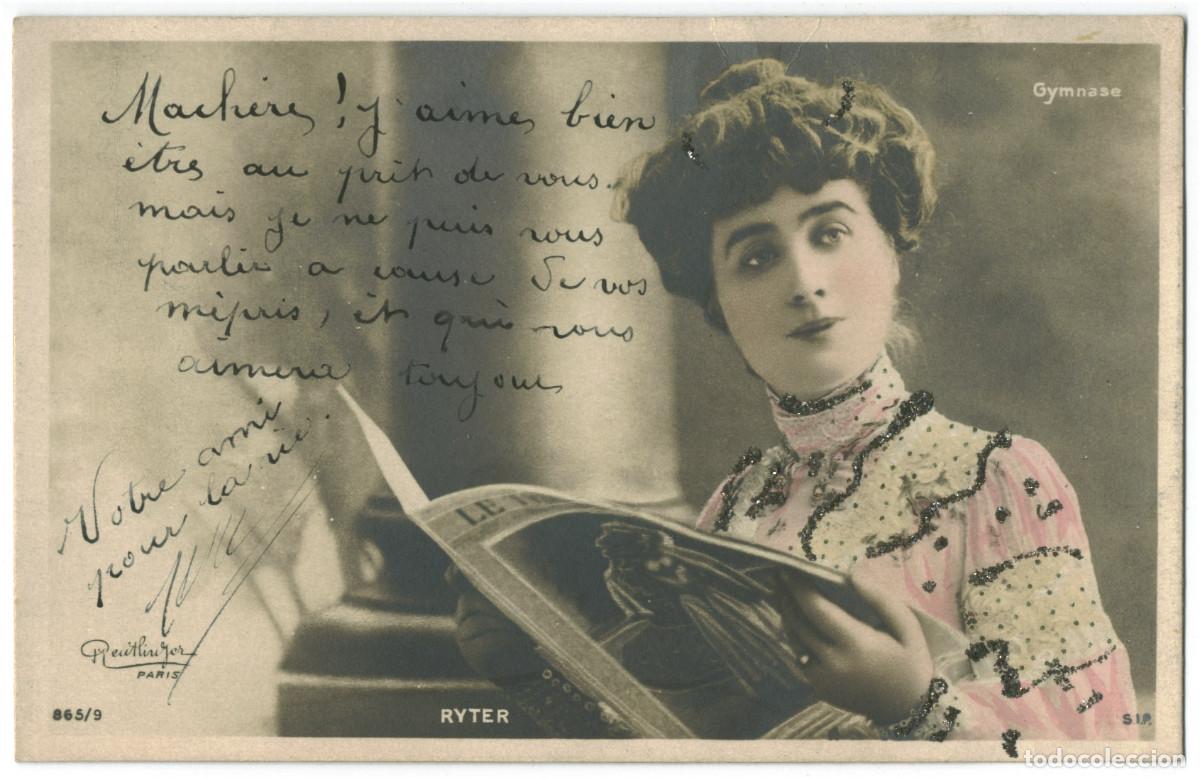 Machère ! j'aime bien
être au prit de vous.
mais je ne puis vous
parlir a cause de vos
mépris, et qui vous
aimera toujour
Votre ami
pour la vie.
Gymnase
LE
Reutlinger
PARIS
865/9
RYTER
S.I.P.
todocoleccion